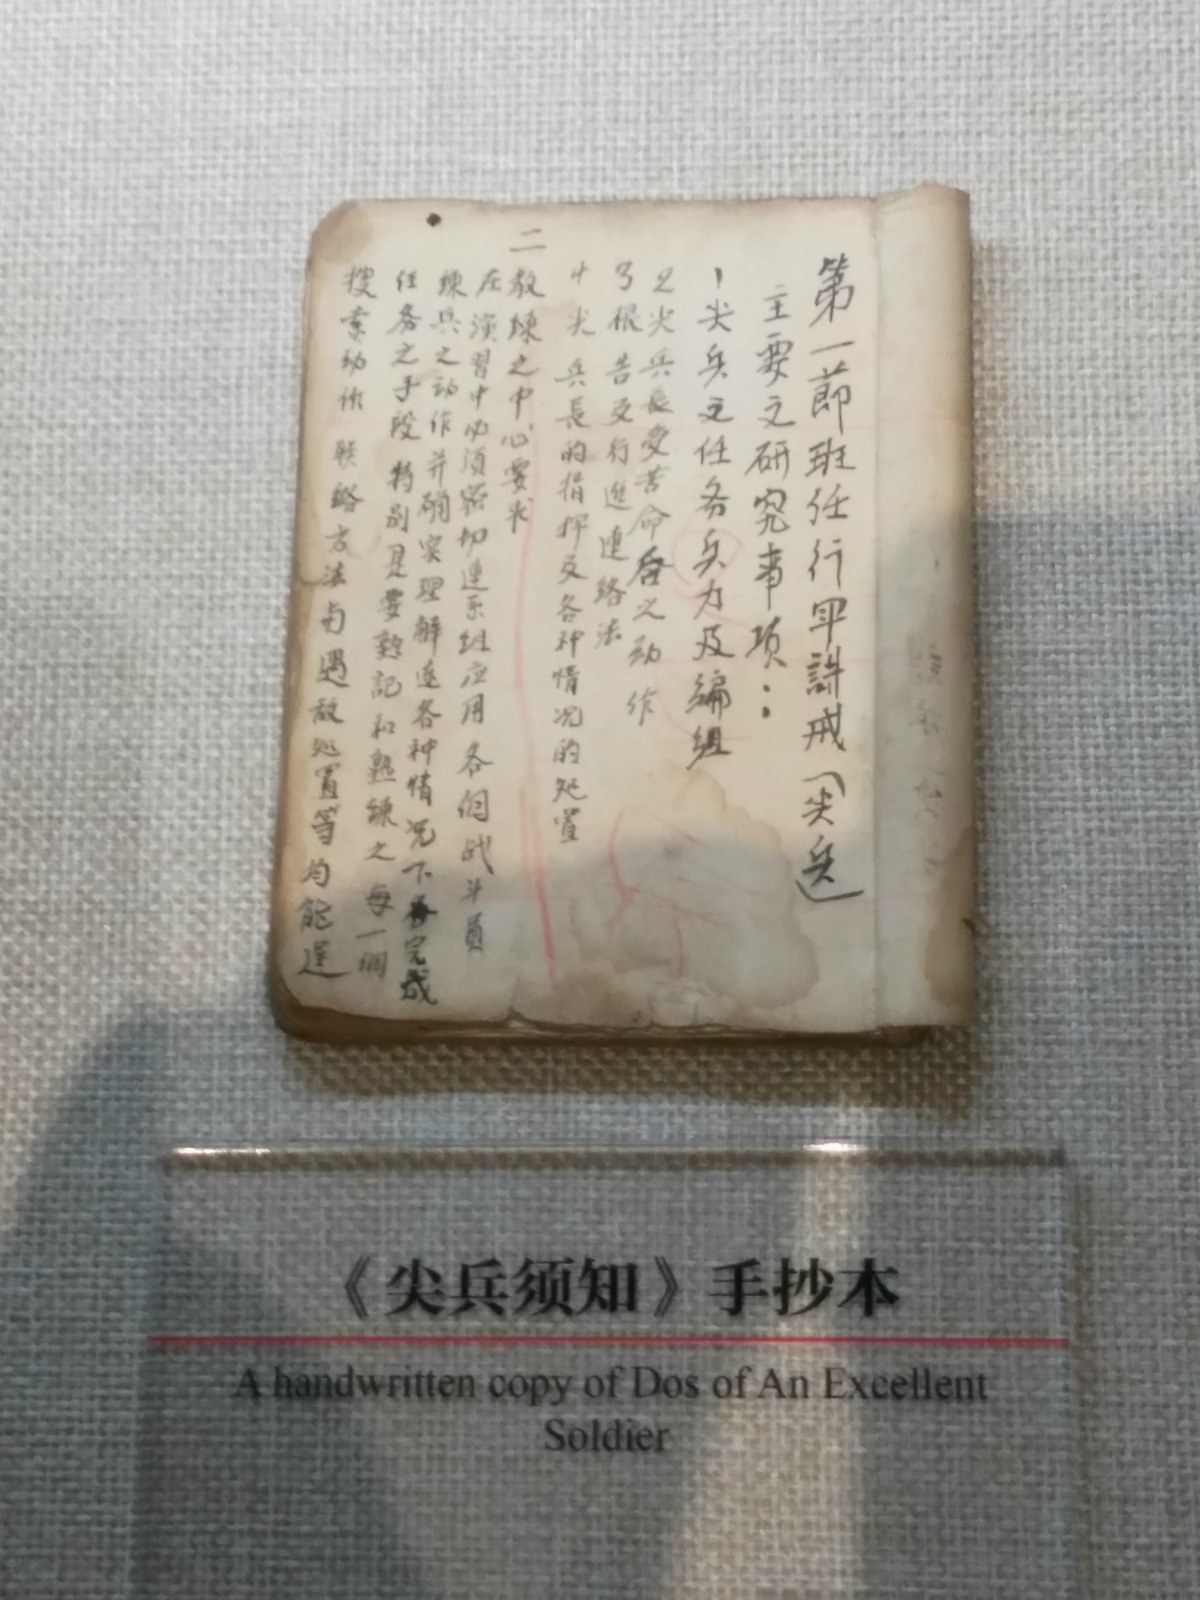 第一節班任行军誡戒（尖兵）
主要之研究事项：
1尖兵之任务兵力及編組
2尖兵長受苦命后之动作
3根告及行进連络法
4尖兵長的指挥及各种情况的处置
二
教練之中心要求
在演習中必須密切連系組应用各個战斗員
練兵之动作并确实理解达各种情况下完成
任务之手段特别是要熟記和熟練之每一個
搜索动作联络方法与遇敌处置等均能达
《尖兵须知》手抄本
A handwritten copy of Dos of An Excellent
Soldier